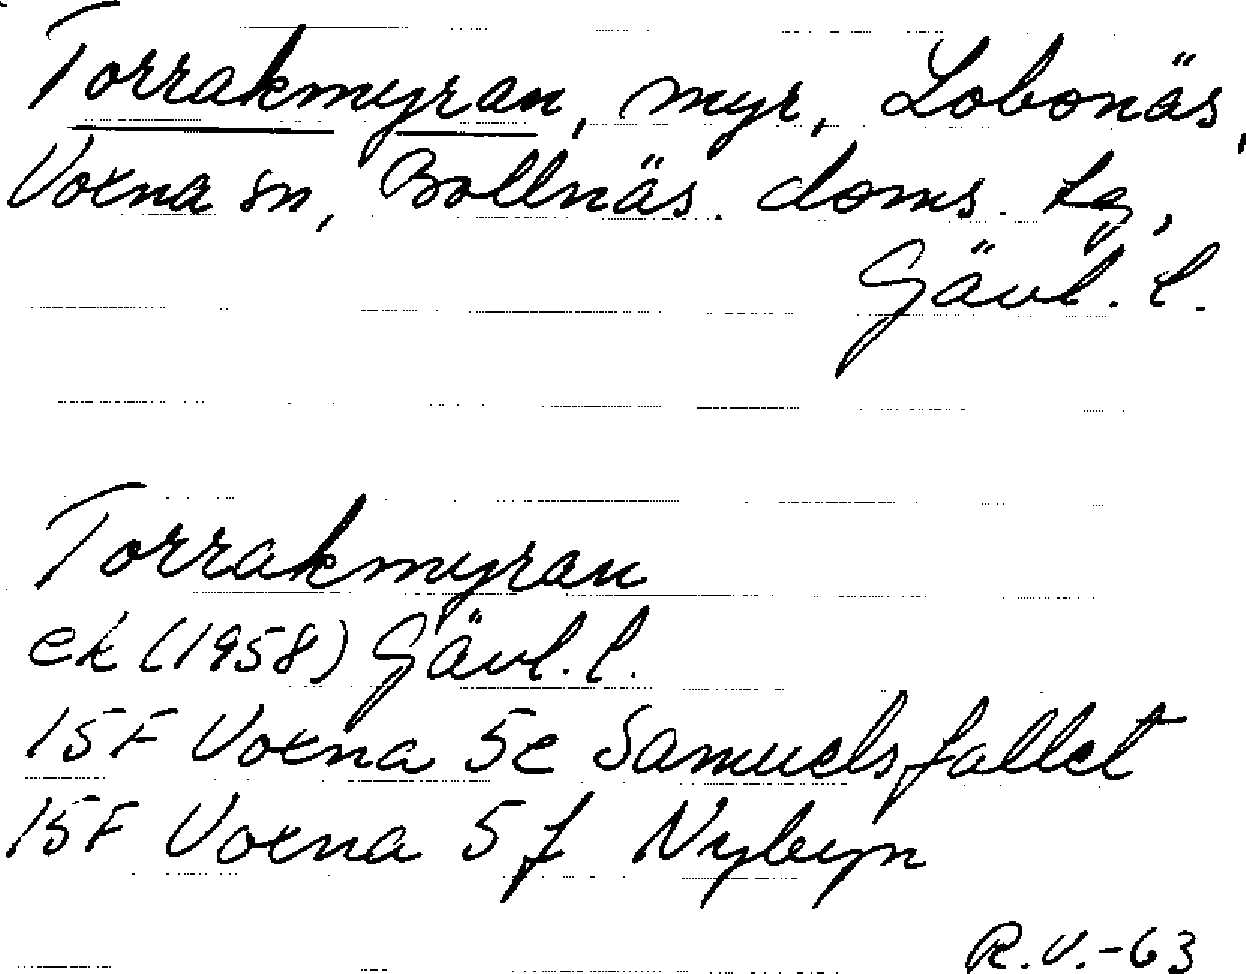 Torrakmyran, myr, Lobonäs,
Voxna sn, Bollnäs doms. tg,
Gävl. l.
Torrakmyran
ek (1958) Gävl. l.
15F Voxna 5e Samuelsfallet
15F Voxna 5f Nybyn
R.V.-63